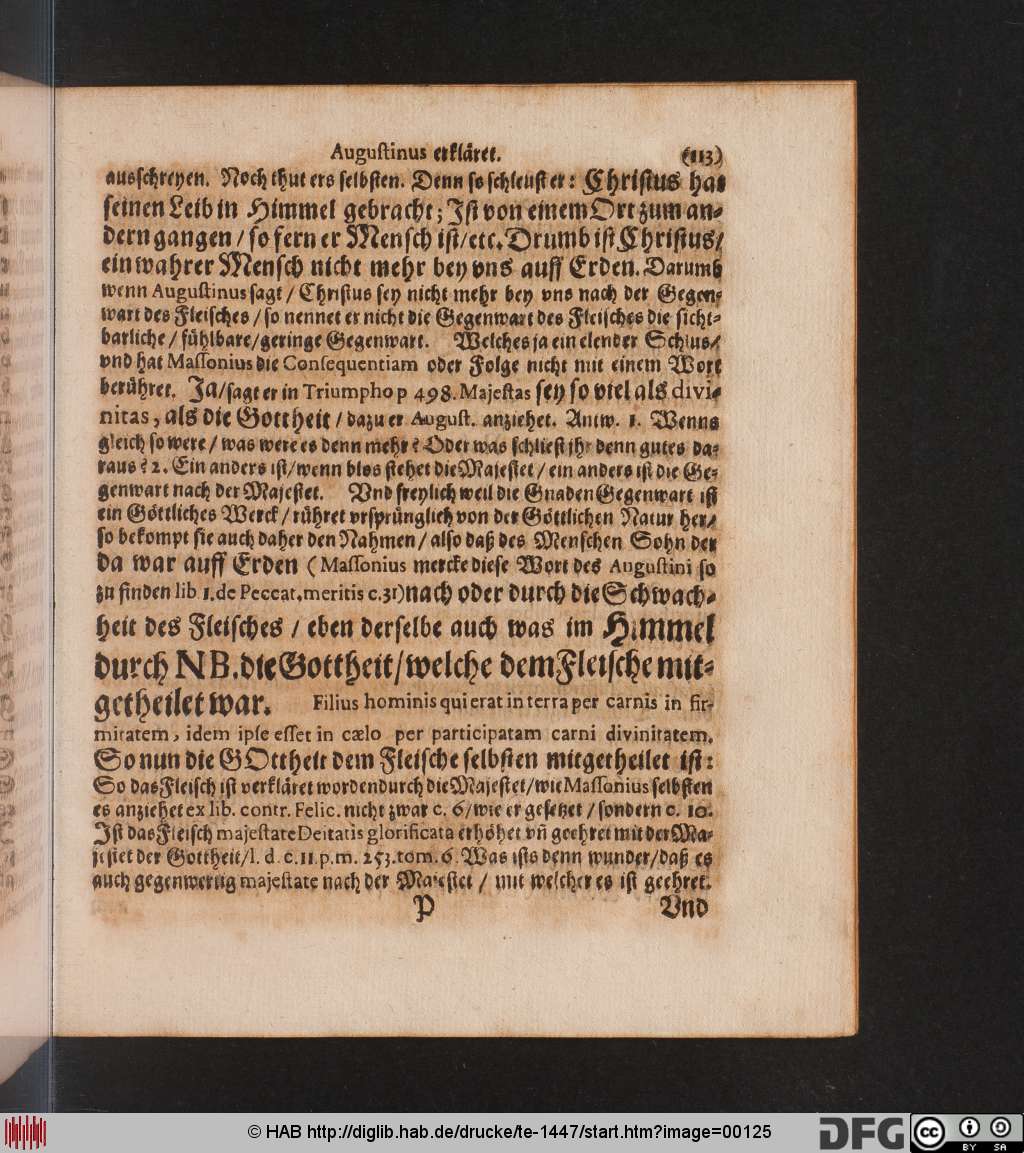 Augustinus erkläret. (113)
ausschreyen. Noch thut ers selbsten. Denn so schleust er: Christus hat
seinen Leib in Himmel gebracht; Ist von einem Ort zum an-
dern gangen / so fern er Mensch ist / etc. Drumb ist Christus /
ein wahrer Mensch nicht mehr bey vns auff Erden. Darumb
wenn Augustinus sagt / Christus sey nicht mehr bey vns nach der Gegen-
wart des Fleisches / so nennet er nicht die Gegenwart des Fleisches die sicht-
barliche / fühlbare / geringe Gegenwart. Welches ja ein elender Schlus /
vnd hat Massonius die Consequentiam oder Folge nicht mit einem Wort
berühret. Ja / sagt er in Triumpho p 498. Majestas sey so viel als divi-
nitas, als die Gottheit / dazu er August. anziehet. Antw. 1. Wenns
gleich so were / was were es denn mehr? Oder was schliest jhr denn gutes da-
raus? 2. Ein anders ist / wenn blos stehet die Majestet / ein anders ist die Ge-
genwart nach der Majestet. Vnd freylich weil die Gnaden Gegenwart ist
ein Göttliches Werck / rühret vrsprünglich von der Göttlichen Natur her /
so bekompt sie auch daher den Nahmen / also daß des Menschen Sohn der
da war auff Erden (Massonius mercke diese Wort des Augustini so
zu finden lib 1. de Peccat. meritis c. 31) nach oder durch die Schwach-
heit des Fleisches / eben derselbe auch was im Himmel
durch NB. die Gottheit / welche dem Fleische mit-
getheilet war. Filius hominis qui erat in terra per carnis in fir-
mitatem, idem ipse esset in cælo per participatam carni divinitatem.
So nun die GOttheit dem Fleische selbsten mitgetheilet ist:
So das Fleisch ist verkläret worden durch die Majestet / wie Massonius selbsten
es anziehet ex lib. contr. Felic. nicht zwar c. 6 / wie er gesetzet / sondern c. 10.
Ist das Fleisch majestate Deitatis glorificata erhöhet vñ geehret mit der Ma-
jestet der Gottheit / l. d. c. 11. p. m. 253. tom. 6. Was ists denn wunder / daß es
auch gegenwertig majestate nach der Majestet / mit welcher es ist geehret.
P Vnd
© HAB http://diglib.hab.de/drucke/te-1447/start.htm?image=00125
DFG cc BY SA